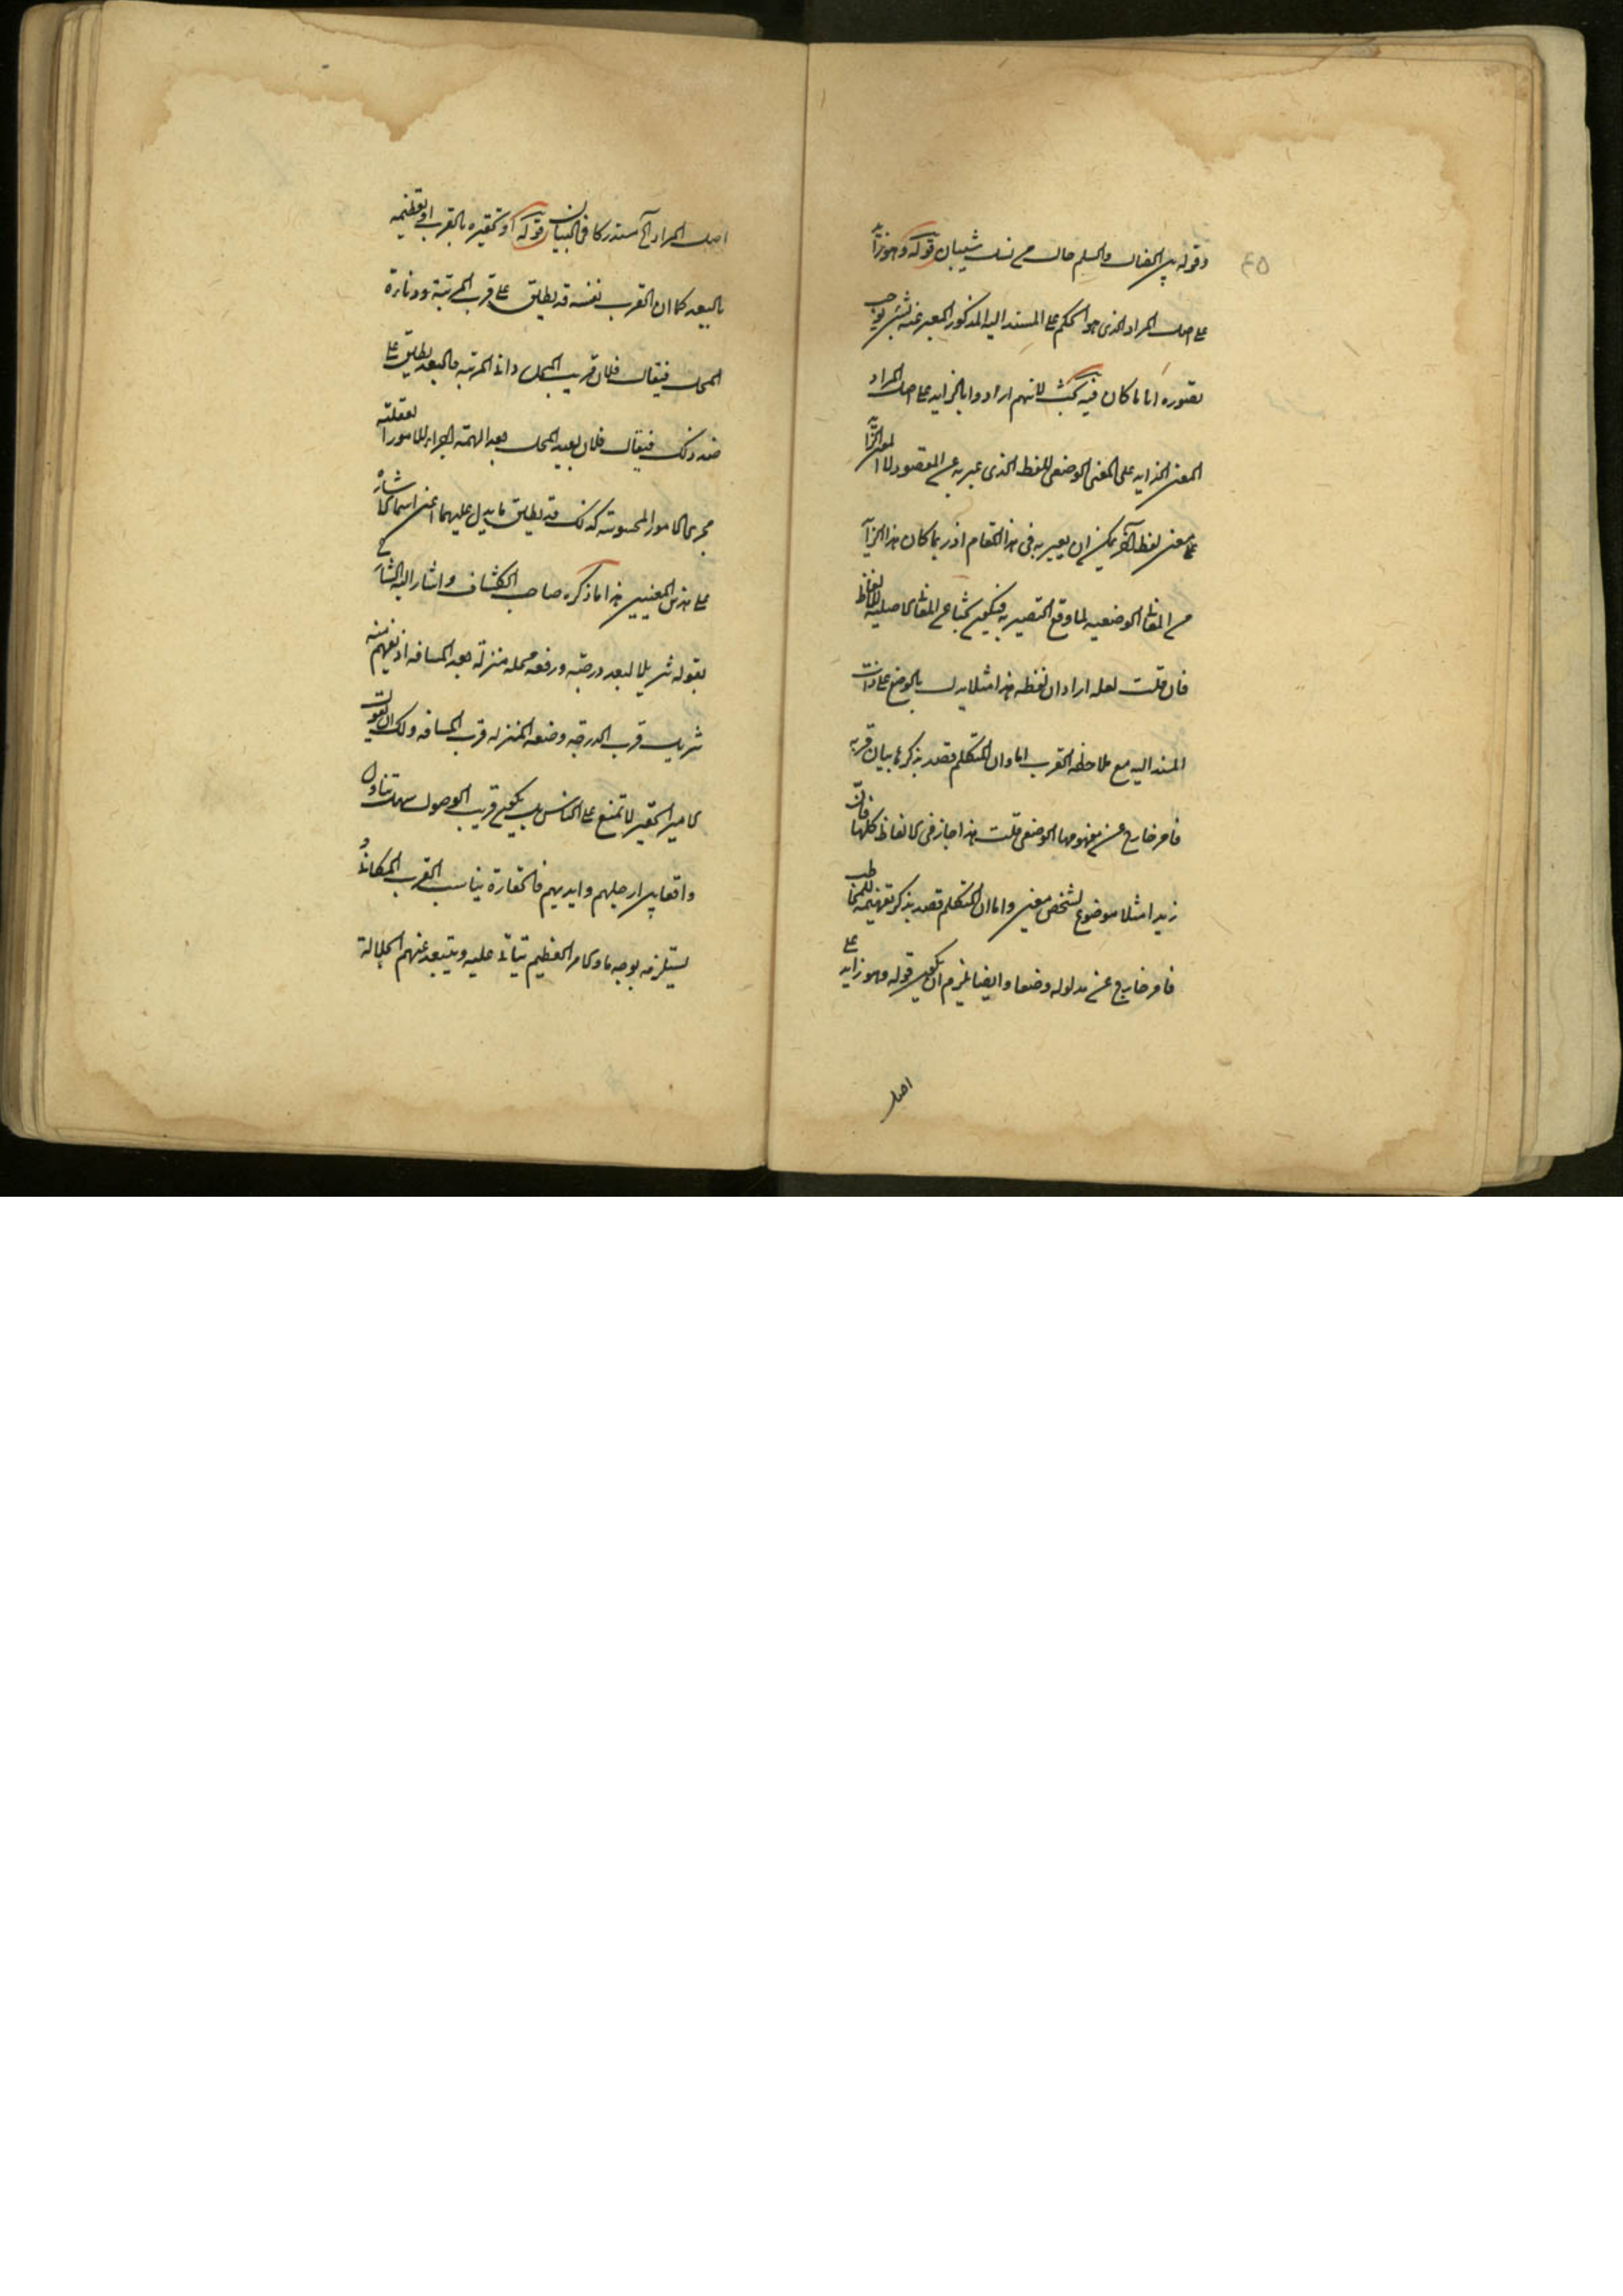 ٤٥
وقوله بين الضال والسلم حال من نسل شيبان قوله وهو زايد
على اصل المراد الذى هو الحكم على المسند اليه المذكور المعبر عنه بشئ يوجب
تصوره اياما كان فيه بحث لانهم ارادوا بالزايد على اصل المراد
المعنى الزايد على المعنى الوضعى للفظ الذى عبر به عن المقصود لا المعنى الزايد
على معنى لفظ آخر يمكن ان يعبر به فى هذا المقام اذ ربما كان هذا الزايد
من المعانى الوضعيه لما وقع التعبير به فيكون بحثا عن المعانى الاصليه للالفاظ
فان قلت لعله اراد ان لفظه هذا مثلا يدل بالوضع على ذات
المسند اليه مع ملاحظه القرب اما وان المتكلم قصد بذكرها بيان قربه
فامر خارج عن مفهومها الوضعى قلت هذا جاز فى الالفاظ كلها فان
زيدا مثلا موضوع لشخص معين واما ان المتكلم قصد بذكره تفهيمه للمخاطب
فامر خارج عن مدلوله وضعا وايضا يلزم ان يكون قوله وهو زايد على
اصل
اصل المراد الخ مستدركا فى البيان قوله او تحقيره بالقرب او تعظيمه
بالبعد كما ان القرب نفسه قد يطلق على قرب المرتبة ودناءة
المحل فيقال فلان قريب المحل دانى المرتبه والبعد يطلق على
ضد ذلك فيقال فلان بعيد المحل بعد الهمته اجراء للامور العقليه
مجرى الامور المحسوسه كذلك قد يطلق ما يدل عليهما اعنى اسماء الاشارة
على هذين المعنيين هذا ما ذكره صاحب الكشاف واشار اليه الشارح
بقوله تنزيلا لبعد درجته ورفعه محله منزلة بعد المسافه اذ يفهم منه
تنزيل قرب الدرجه وضعه المنزله قرب المسافه ولك ان تقول
الامير الحقير لا تمنع على الناس بل يكون قريب الوصول سهل تناول
واقعا بين ارجلهم وايديهم فالحقارة يناسب القرب المكانى و
يستلزمه بوجه ما والامر العظيم يتأبى عليه ويتبعد عنهم لجلالة